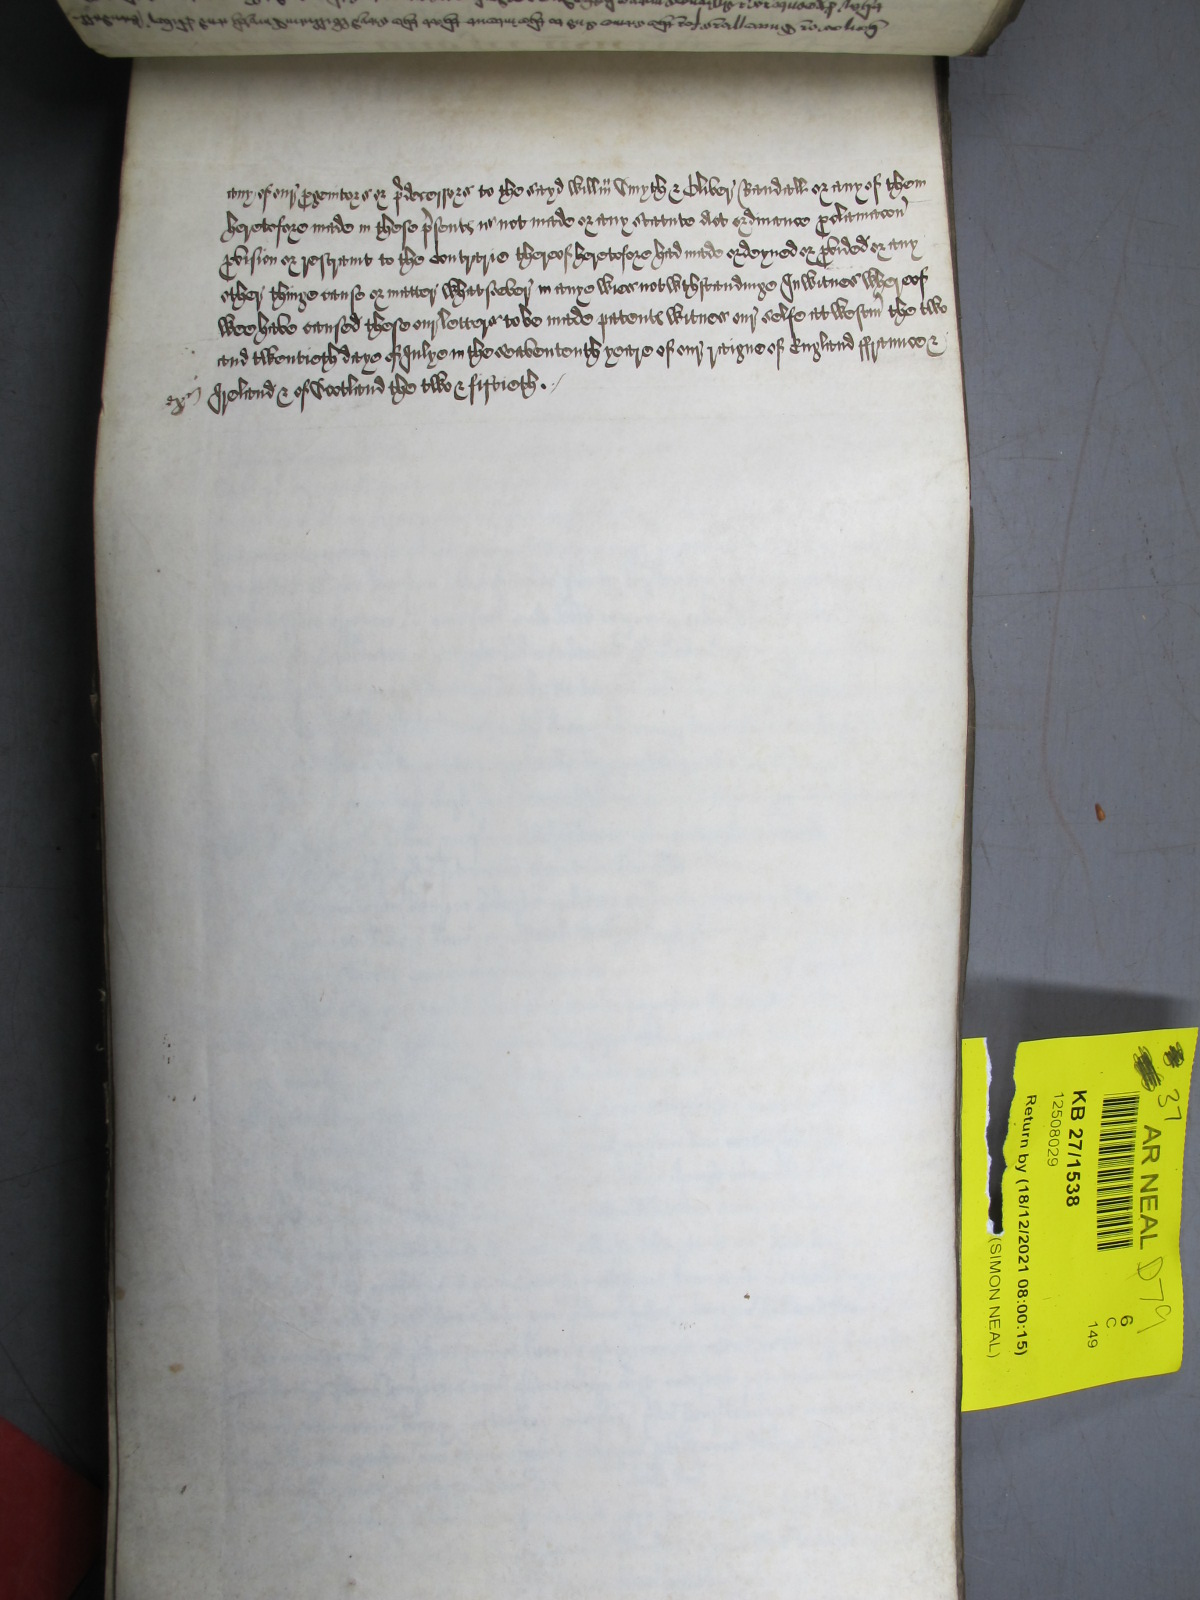 any of our p̱genitors or p̃decessors to the sayd Willm̃ Smyth & Oliver Randall or any of them
heretofore made in these p̃sents is not made or any statute Act ordinance p̱clamacoñ
p̱vision or restraint to the contrarie thereof heretofore had made ordeyned or p̱vided or any
other thinge cause or matter whatsoever in anye wies notwithstandinge In witnes whereof
wee have caused these our letters to be made patents witnes our selfe at Westm̃ the two
and twentieth daye of Julye in the seavententh yeare of our raigne of England ffraunce &
exr Ireland & of Scotland the two & fiftieth.
37
AR NEAL D79
6
C
149
KB 27/1538
12508029
Return by (18/12/2021 08:00:15)
(SIMON NEAL)